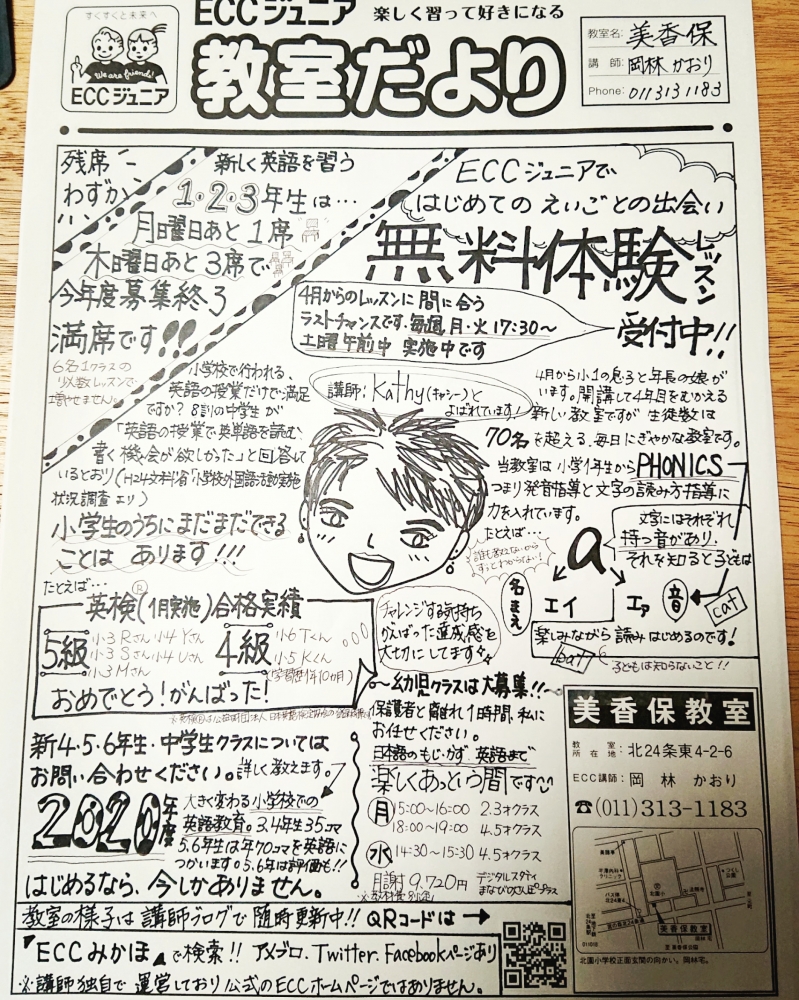 すくすくと未来へ
We are friends!
ECCジュニア
ECCジュニア 楽しく習って好きになる
教室だより
教室名: 美香保
講師: 岡林 かおり
Phone: 011 313 1183
残席
わずか
新しく英語を習う
1・2・3年生は…
月曜日あと1席
木曜日あと3席で
今年度募集終了
満席です!!
6名1クラスの
少数レッスンで
増やせません。
ECCジュニアで
はじめての えいごとの出会い
無料体験レッスン
4月からのレッスンに間に合う
ラストチャンスです。毎週月・火17:30〜
土曜午前中 実施中です
受付中!!
小学校で行われる、
英語の授業だけで満足
ですか? 8割の中学生が
「英語の授業で英単語を読む、
書く機会が欲しかった」と回答して
いるとおり(H24文科省「小学校外国語活動実施
状況調査」より)
小学生のうちにまだまだできる
ことは あります!!!
講師:Kathy(キャシー)と
よばれています!
4月から小1の息子と年長の娘が
います。開講して4年目をむかえる
新しい教室ですが 生徒数は
70名を超える、毎日にぎやかな教室です。
当教室は小学1年生からPHONICS
つまり発音指導と文字の読み方指導に
力を入れています。
たとえば…
誰も教えないから
ずっとわからない!
文字にはそれぞれ
持つ音があり、
それを知ると子どもは
a
名まえ
エイ
エァ
音
cat
bat
楽しみながら読みはじめるのです!
子どもは知らないこと!!
たとえば…
英検®(1月実施)合格実績
5級
小3Rさん 小4Yさん
小3Sさん 小4Uさん
小3Mさん
4級
小6Tくん
小5Kくん
(学習歴1年10ヶ月)
おめでとう!がんばった!
チャレンジする気持ち
がんばった達成感を
大切にしてます
〜幼児クラスは大募集!!〜
保護者と離れ1時間、私に
お任せください。
日本語のもじ・かず、英語まで
楽しくあっという間です
月 15:00〜16:00 2.3才クラス
18:00〜19:00 4.5才クラス
水 14:30〜15:30 4.5才クラス
月謝 9.720円
デジタルスタディ
まなびのさんぽプラス
※教材費別途
新4・5・6年生・中学生クラスについては
お問い合わせください。詳しく教えます。
2020年度
大きく変わる小学校での
英語教育。3.4年生35コマ
5.6年生は年70コマを英語に
つかいます。5.6年は評価も!!
はじめるなら、今しかありません。
美香保教室
教室所在地: 北24条東4-2-6
ECC講師: 岡林 かおり
☎(011)313-1183
美香保教室
北園小学校正面玄関の向かい。岡林宅。
教室の様子は講師ブログで随時更新中!! QRコードは→
「ECCみかほ」で検索!! アメブロ.Twitter.Facebookページあり
※講師独自で運営しており公式のECCホームページではありません。